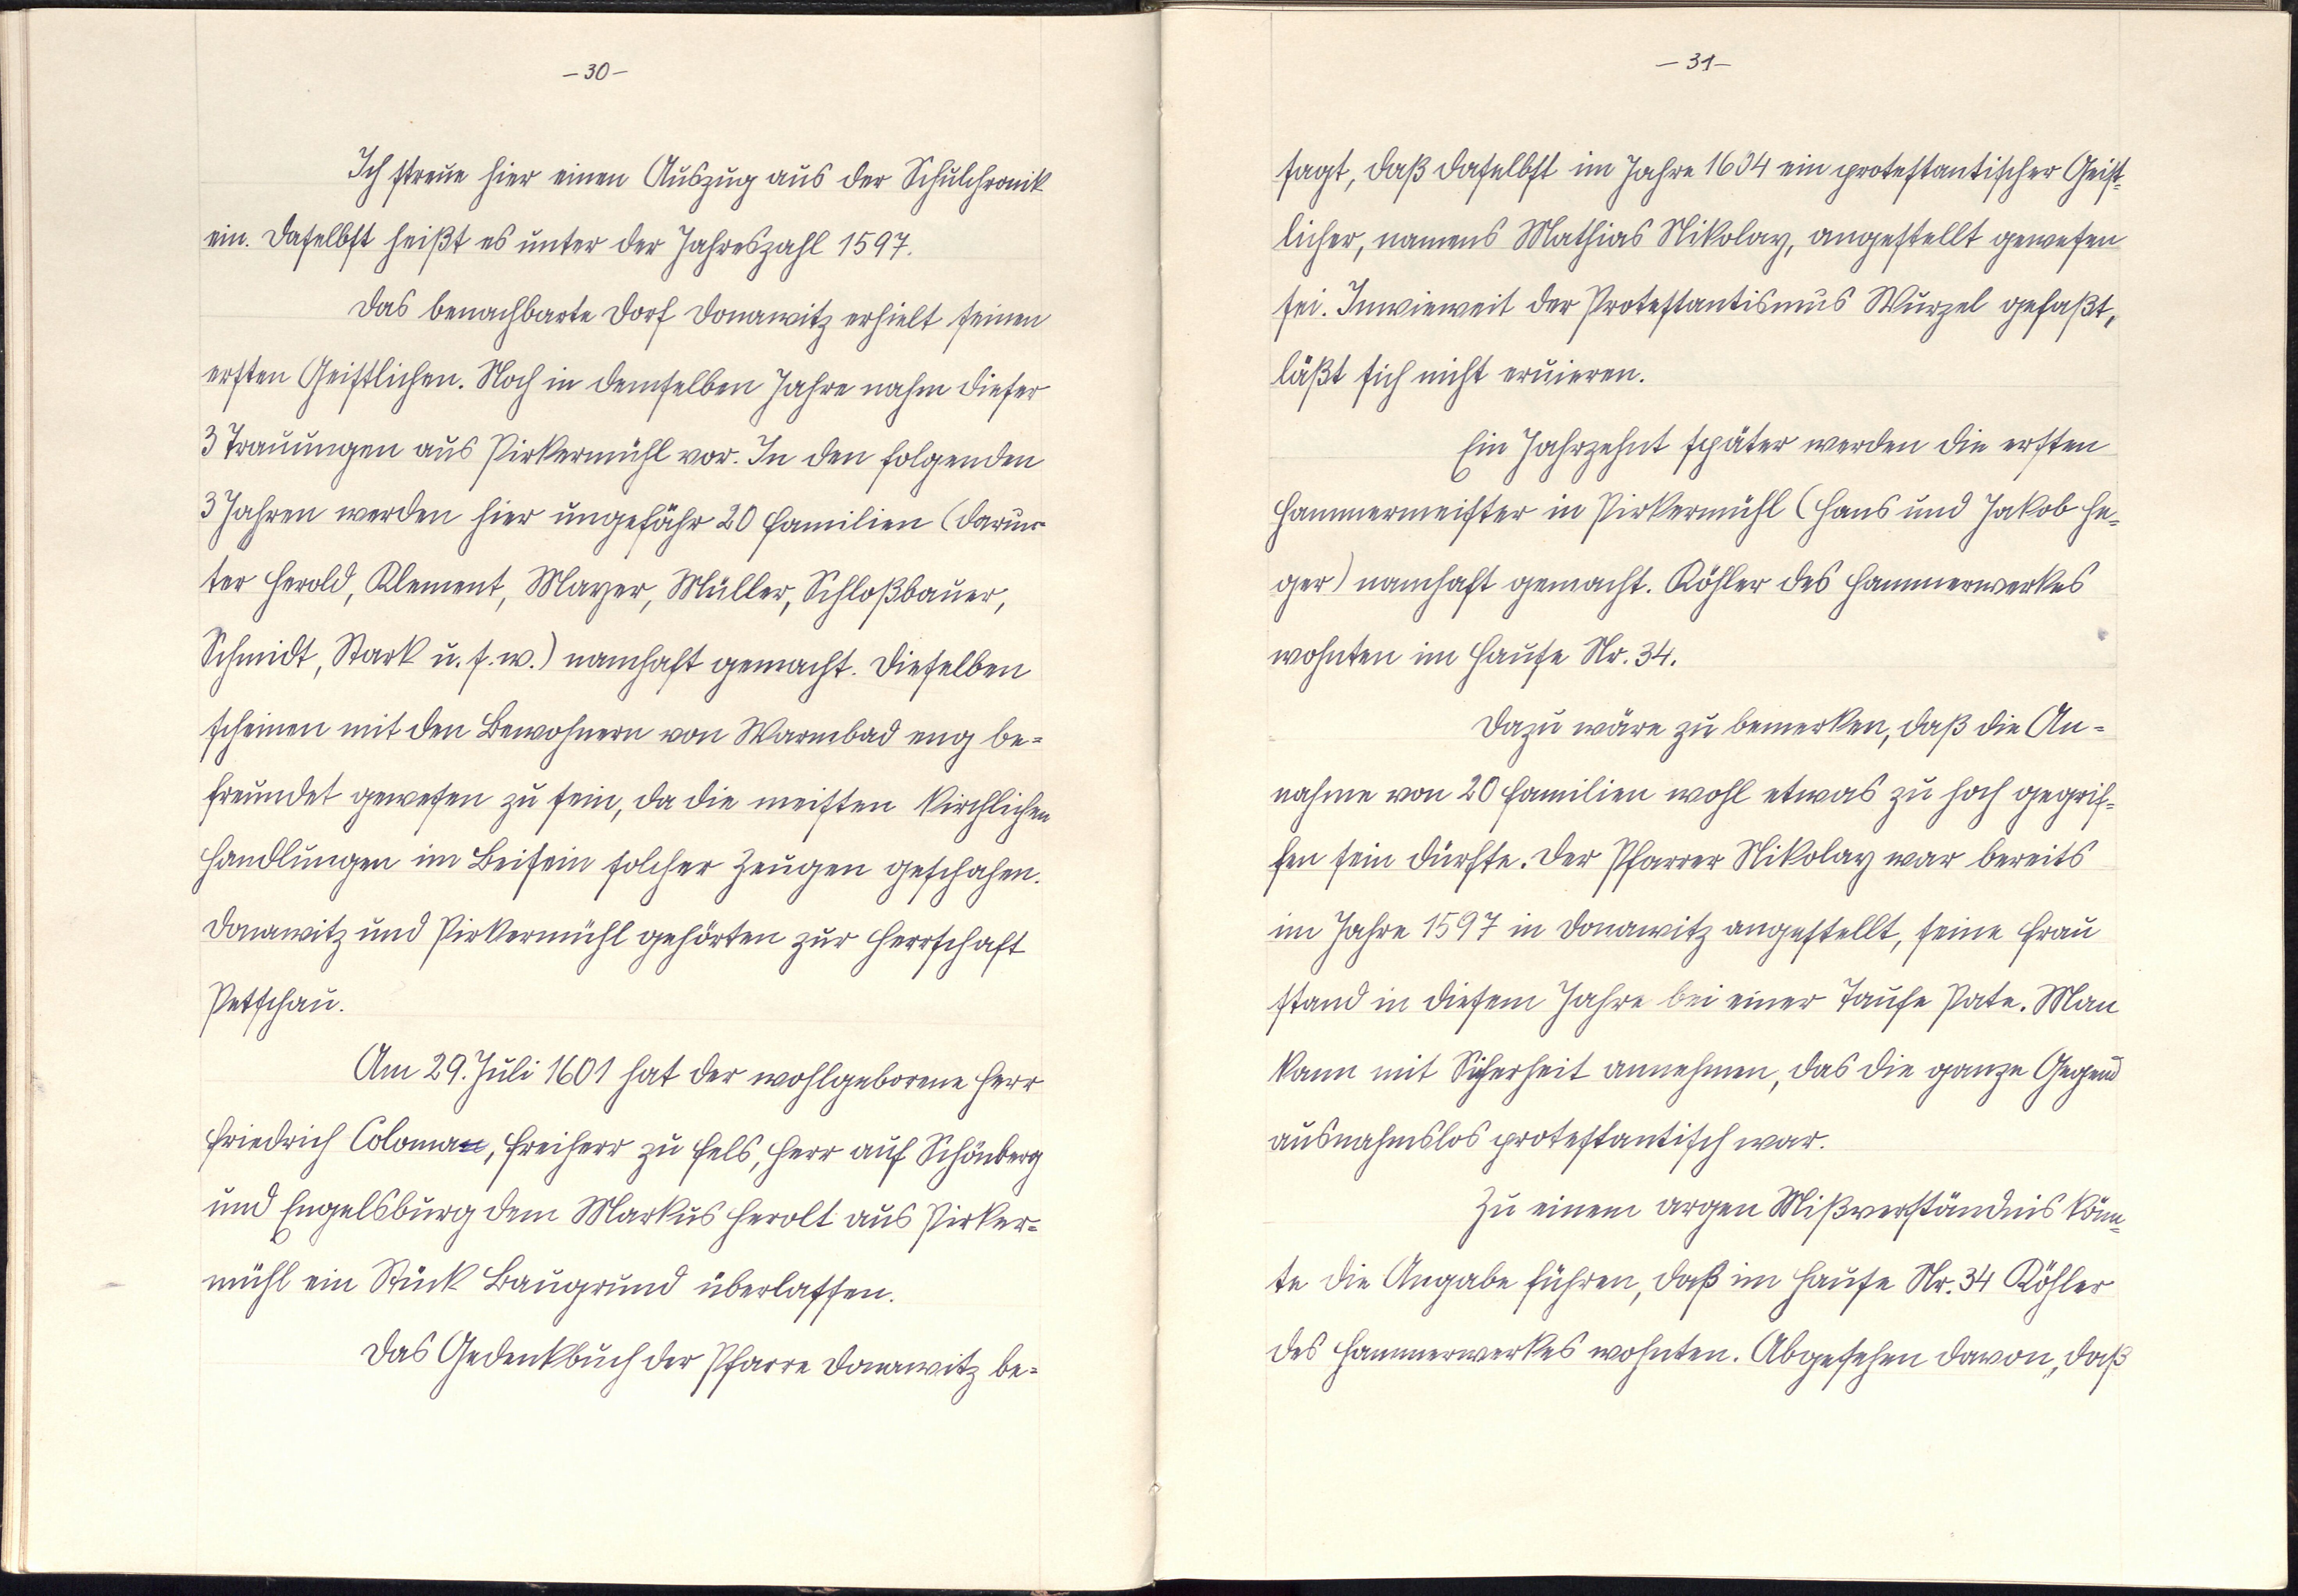 -30-
Ich streue hier einen Auszug aus der Schulchronik
ein. Daselbst heißt es unter der Jahreszahl 1597.
Das benachbarte Dorf Donawitz erhielt seinen
ersten Geistlichen. Noch in demselben Jahre nahm dieser
3 Trauungen aus Pirkermühl vor. In den folgenden
3 Jahren werden hier ungefähr 20 Familien (darun-
ter Herold, Klement, Mayer, Müller, Schloßbauer,
Schmidt, Stark u. s. w.) namhaft gemacht. Dieselben
scheinen mit den Bewohnern von Warmbad eng be=
freundet gewesen zu sein, da die meisten kirchlichen
Handlungen im Beisein solcher Zeugen geschahen.
Donawitz und Pirkermühl gehörten zur Herrschaft
Petschau.
Am 29. Juli 1601 hat der wohlgeborene Herr
Friedrich Coloman, Freiherr zu Fels, Herr auf Schönberg
und Engelsburg dem Markus Herolt aus Pirker=
mühl ein Stück Baugrund überlassen.
Das Gedenkbuch der Pfarre Donawitz be=
-31-
sagt, daß daselbst im Jahre 1604 ein protestantischer Geist=
licher, namens Mathias Nikolay, angestellt gewesen
sei. Inwieweit der Protestantismus Wurzel gefaßt,
läßt sich nicht eruieren.
Ein Jahrzehnt später werden die ersten
Hammermeister in Pirkermühl (Hans und Jakob He=
ger) namhaft gemacht. Köhler des Hammerwerkes
wohnten im Hause Nr. 34.
Dazu wäre zu bemerken, daß die An=
nahme von 20 Familien wohl etwas zu hoch gegrif=
fen sein dürfte. Der Pfarrer Nikolay war bereits
im Jahre 1597 in Donawitz angestellt, seine Frau
stand in diesem Jahre bei einer Taufe Pate. Man
kann mit Sicherheit annehmen, das die ganze Gegend
ausnahmslos protestantisch war.
Zu einem argen Mißverständnis könn=
te die Angabe führen, daß im Hause Nr. 34 Köhler
des Hammerwerkes wohnten. Abgesehen davon, daß